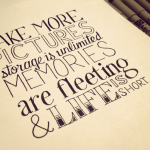 MAKE MORE
PICTURES
storage is unlimited
MEMORIES
are fleeting
& LIFE IS
SHORT